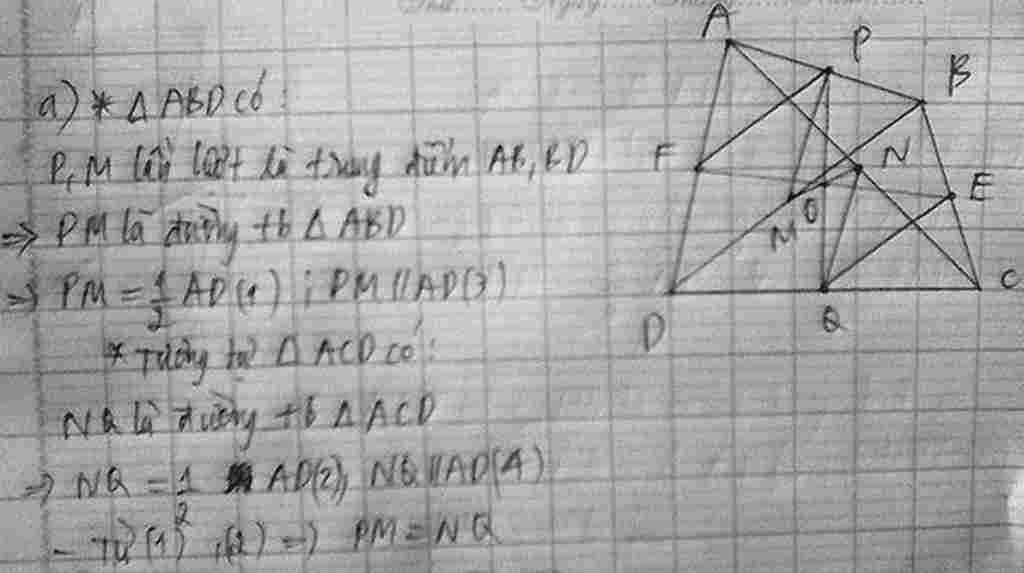 a) * Δ ABD có:
P, M lần lượt là trung điểm AB, BD
=> PM là đường tb Δ ABD
=> PM = 1/2 AD (1) ; PM // AD (3)
* Tương tự Δ ACD có:
NQ là đường tb Δ ACD
=> NQ = 1/2 AD (2), NQ // AD (4)
- Từ (1), (2) => PM = NQ
A
P
B
F
N
E
M
O
D
Q
C